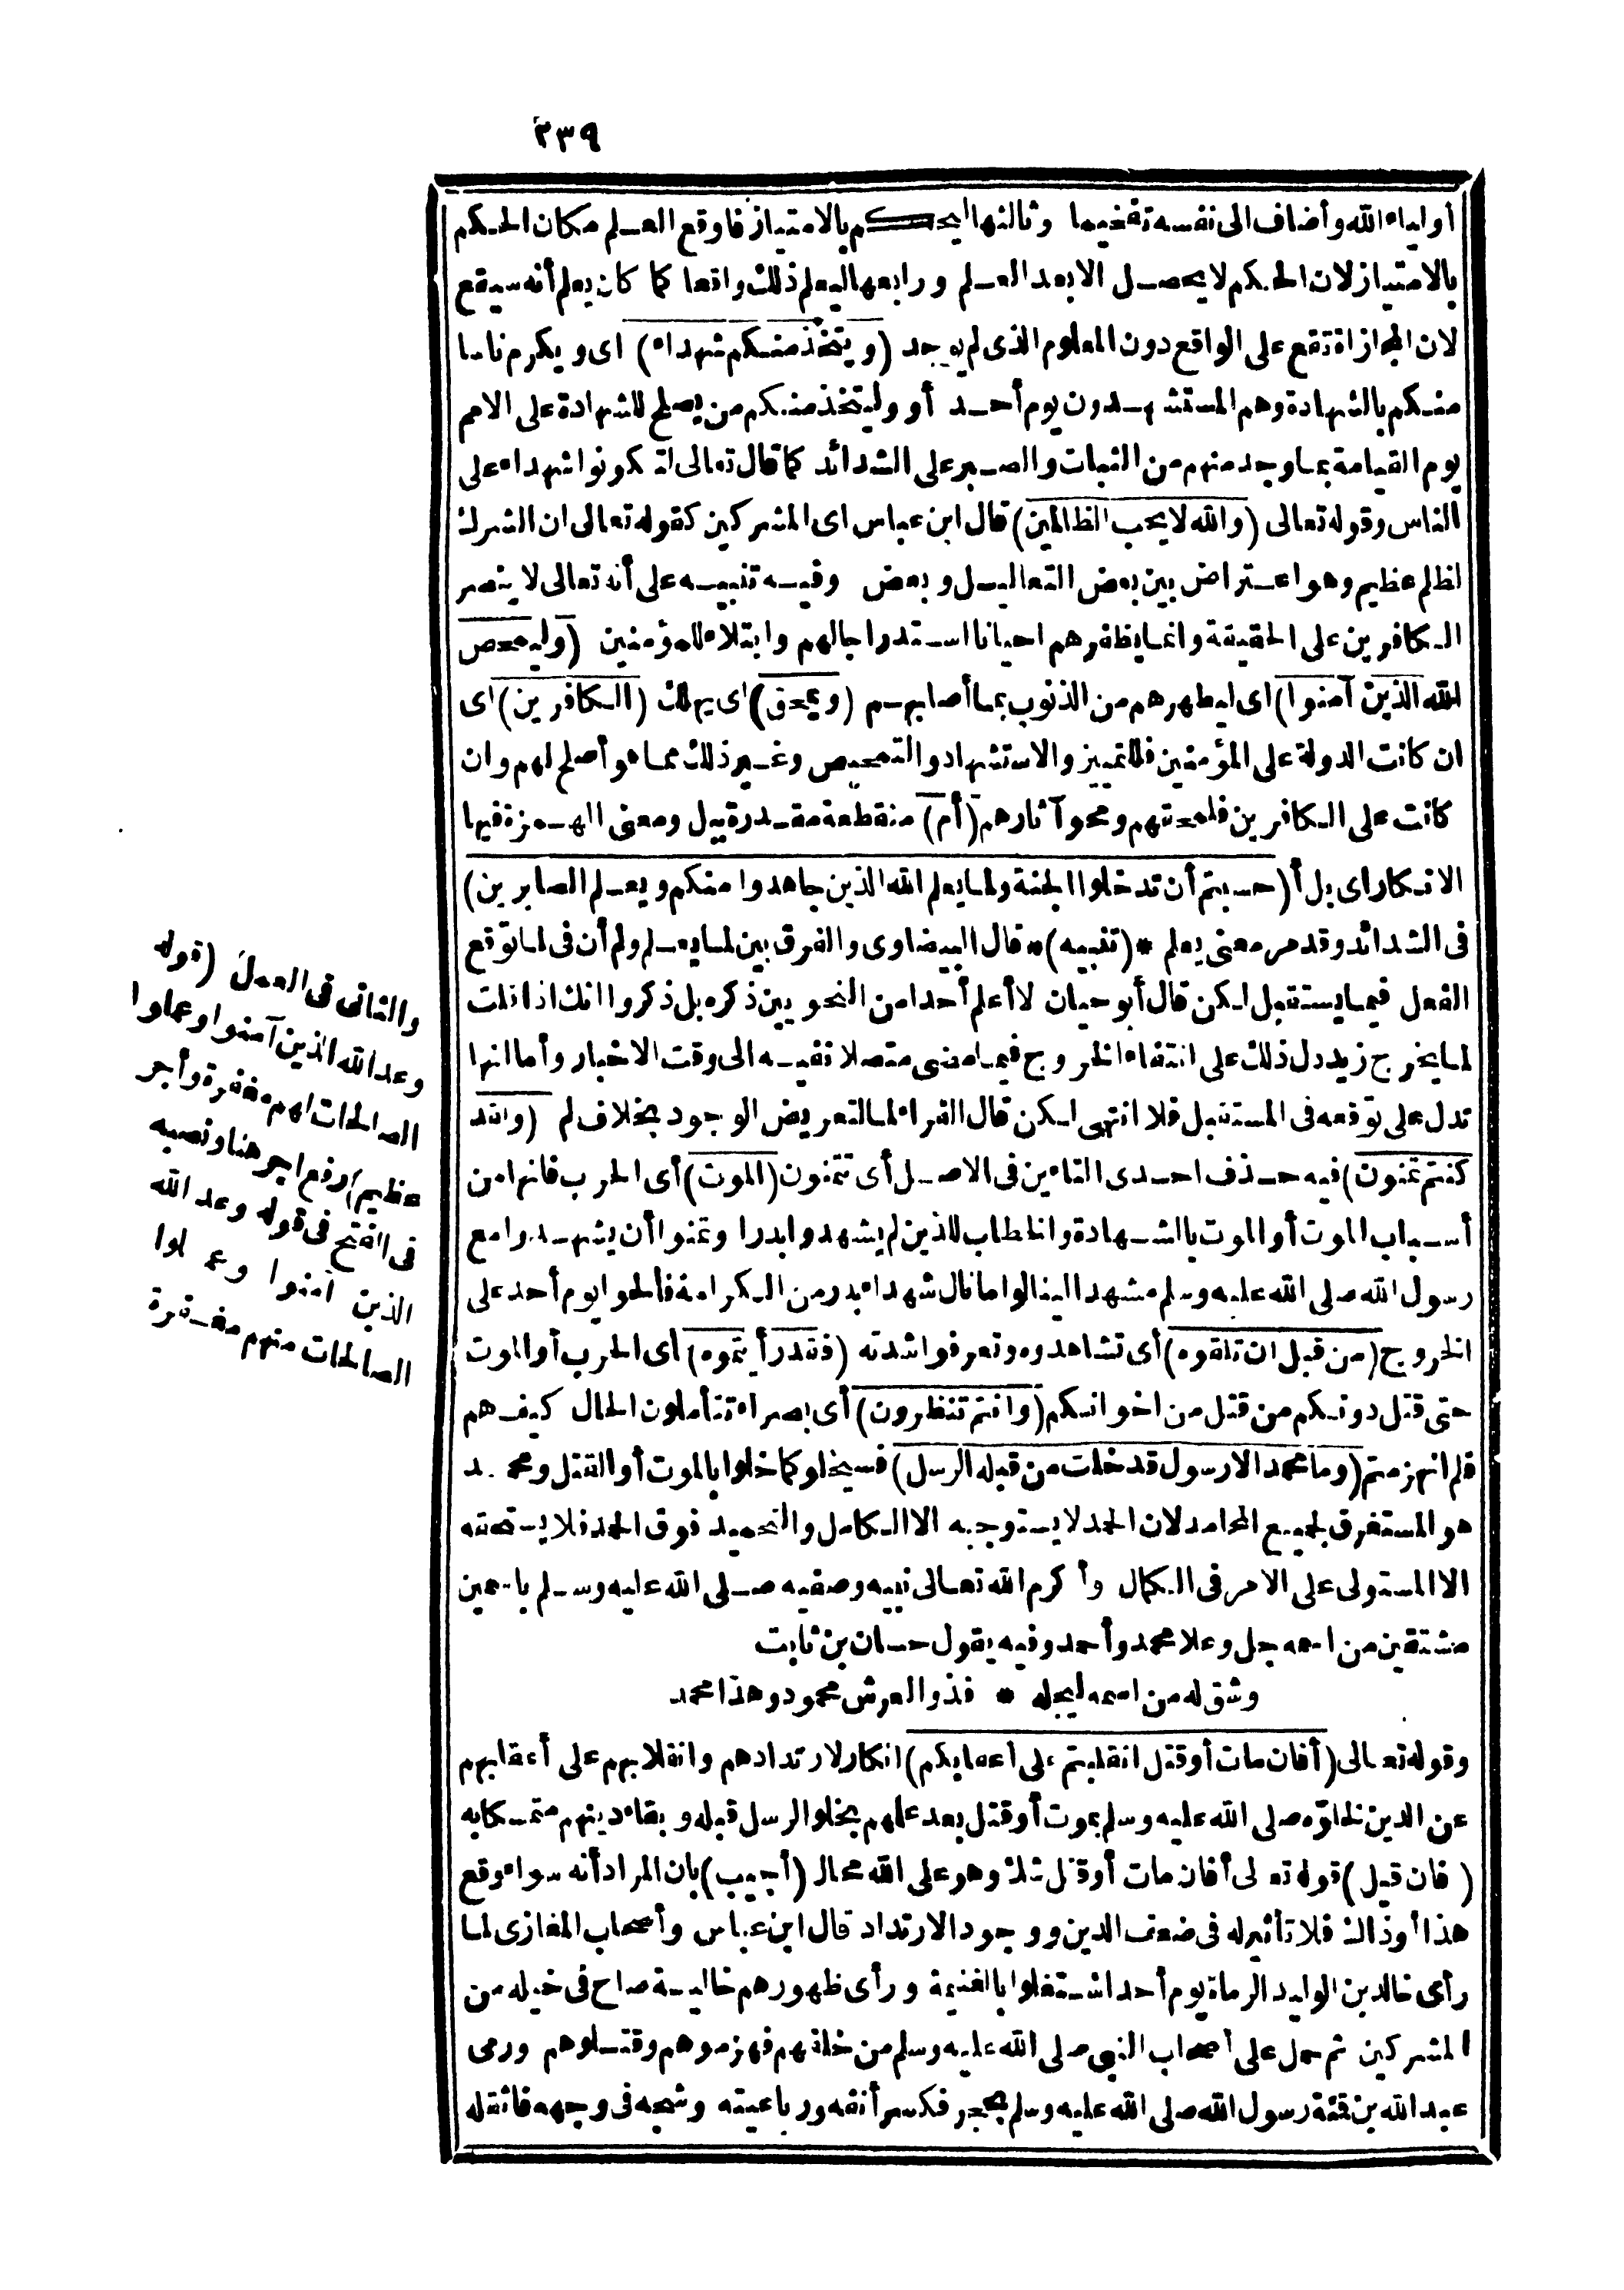 ٢٣٩
أولياء الله وأضاف الى نفسه تفخيما وثالثها ليحكم بالامتياز فاوقع العلم مكان الحكم
بالامتياز لان الحكم لا يحصل الا بعد العلم ورابعها ليعلم ذلك واقعا كما كان يعلم أنه سيقع
لان المجازاة تقع على الواقع دون المعلوم الذى لم يوجد (ويتخذ منكم شهداء) اى ويكرم ناسا
منكم بالشهادة وهم المستشهدون يوم أحد أو وليتخذ منكم من يصلح للشهادة على الامم
يوم القيامة بما وجد منهم من الثبات والصبر على الشدائد كما قال تعالى لتكونوا شهداء على
الناس وقوله تعالى (والله لا يحب الظالمين) قال ابن عباس اى المشركين كقوله تعالى ان الشرك
لظلم عظيم وهو اعتراض بين بعض التعاليل وبعض وفيه تنبيه على أنه تعالى لا ينصر
الكافرين على الحقيقة وانما يظفرهم احيانا استدراجالهم وابتلاء للمؤمنين (وليمحص
الله الذين آمنوا) اى ليطهرهم من الذنوب بما أصابهم (ويمحق) اى يهلك (الكافرين) اى
ان كانت الدولة على المؤمنين فللتمييز والاستشهاد والتمحيص وغير ذلك مما هو أصلح لهم وان
كانت على الكافرين فلمحقهم ومحو آثارهم (أم) منقطعة مقدرة ببل ومعنى الهمزة فيها
الانكار اى بل أ(حسبتم أن تدخلوا الجنة ولما يعلم الله الذين جاهدوا منكم ويعلم الصابرين)
فى الشدائد وقد مر معنى يعلم * (تنبيه) * قال البيضاوى والفرق بين لما يعلم ولم أن فى لما توقع
الفعل فيما يستقبل لكن قال أبو حيان لا أعلم أحدا من النحويين ذكره بل ذكروا انك اذا قلت
لما يخرج زيد دل ذلك على انتفاء الخروج فيما مضى متصلا نفيه الى وقت الاخبار وأما انها
تدل على توقعه فى المستقبل فلا انتهى لكن قال الفراء لما لتعريض الوجود بخلاف لم (ولقد
كنتم تمنون) فيه حذف احدى التاءين فى الاصل أى تتمنون (الموت) أى الحرب فانها من
أسباب الموت أو الموت بالشهادة والخطاب للذين لم يشهدوا بدرا وتمنوا أن يشهدوا مع
رسول الله صلى الله عليه وسلم مشهدا لينالوا ما نال شهداء بدر من الكرامة فألحوا يوم أحد على
الخروج (من قبل ان تلقوه) أى تشاهدوه وتعرفوا شدته (فقد رأيتموه) أى الحرب أو الموت
حتى قتل دونكم من قتل من اخوانكم (وانتم تنظرون) أى بصراء تتأملون الحال كيف هم
فلم انهزمتم (وما محمد الا رسول قد خلت من قبله الرسل) فسيخلو كما خلوا بالموت أو القتل ومحمد
هو المستغرق لجميع المحامد لان الحمد لا يستوجبه الا الكامل والتحميد فوق الحمد فلا يستحقه
الا المستولى على الامر فى الكمال وأكرم الله تعالى نبيه وصفيه صلى الله عليه وسلم باسمين
مشتقين من اسمه جل وعلا محمد وأحمد وفيه يقول حسان بن ثابت
وشق له من اسمه ليجله * فذو العرش محمود وهذا محمد
وقوله تعالى (أفان مات أو قتل انقلبتم على اعقابكم) انكار لارتدادهم وانقلابهم على أعقابهم
عن الدين لخلوّه صلى الله عليه وسلم بموت أو قتل بعد علمهم بخلو الرسل قبله وبقاء دينهم متمسكا به
(فان قيل) قوله تعالى أفان مات أو قتل شك وهو على الله محال (أجيب) بان المراد أنه سواء وقع
هذا أو ذاك فلا تأثير له فى ضعف الدين ووجود الارتداد قال ابن عباس وأصحاب المغازى لما
رأى خالد بن الوليد الرماة يوم أحد اشتغلوا بالغنيمة ورأى ظهورهم خالية صاح فى خيله من
المشركين ثم حمل على أصحاب النبى صلى الله عليه وسلم من خلفهم فهزموهم وقتلوهم ورمى
عبد الله بن قمئة رسول الله صلى الله عليه وسلم بحجر فكسر أنفه ورباعيته وشجه فى وجهه فاثقله
والثانى فى العمل (قوله
وعد الله الذين آمنوا وعملوا
الصالحات لهم مغفرة وأجر
عظيم) رفع اجر هنا ونصبه
فى الفتح فى قوله وعد الله
الذين آمنوا وعملوا
الصالحات منهم مغفرة